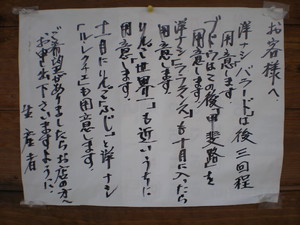 お客様へ
洋ナシ「バラード」は後三回程
用意します
ブドウはこの後「甲斐路」を
用意します。
洋ナシ「ラ・フランス」も十月に入ったら
用意します。
りんご「世界一」も近いうちに
用意します。
十一月にりんご「ふじ」と洋ナシ
「ル・レクチェ」も用意します。
ご希望等ありましたらお店の方へ
お申し出下さいますように。
生産者